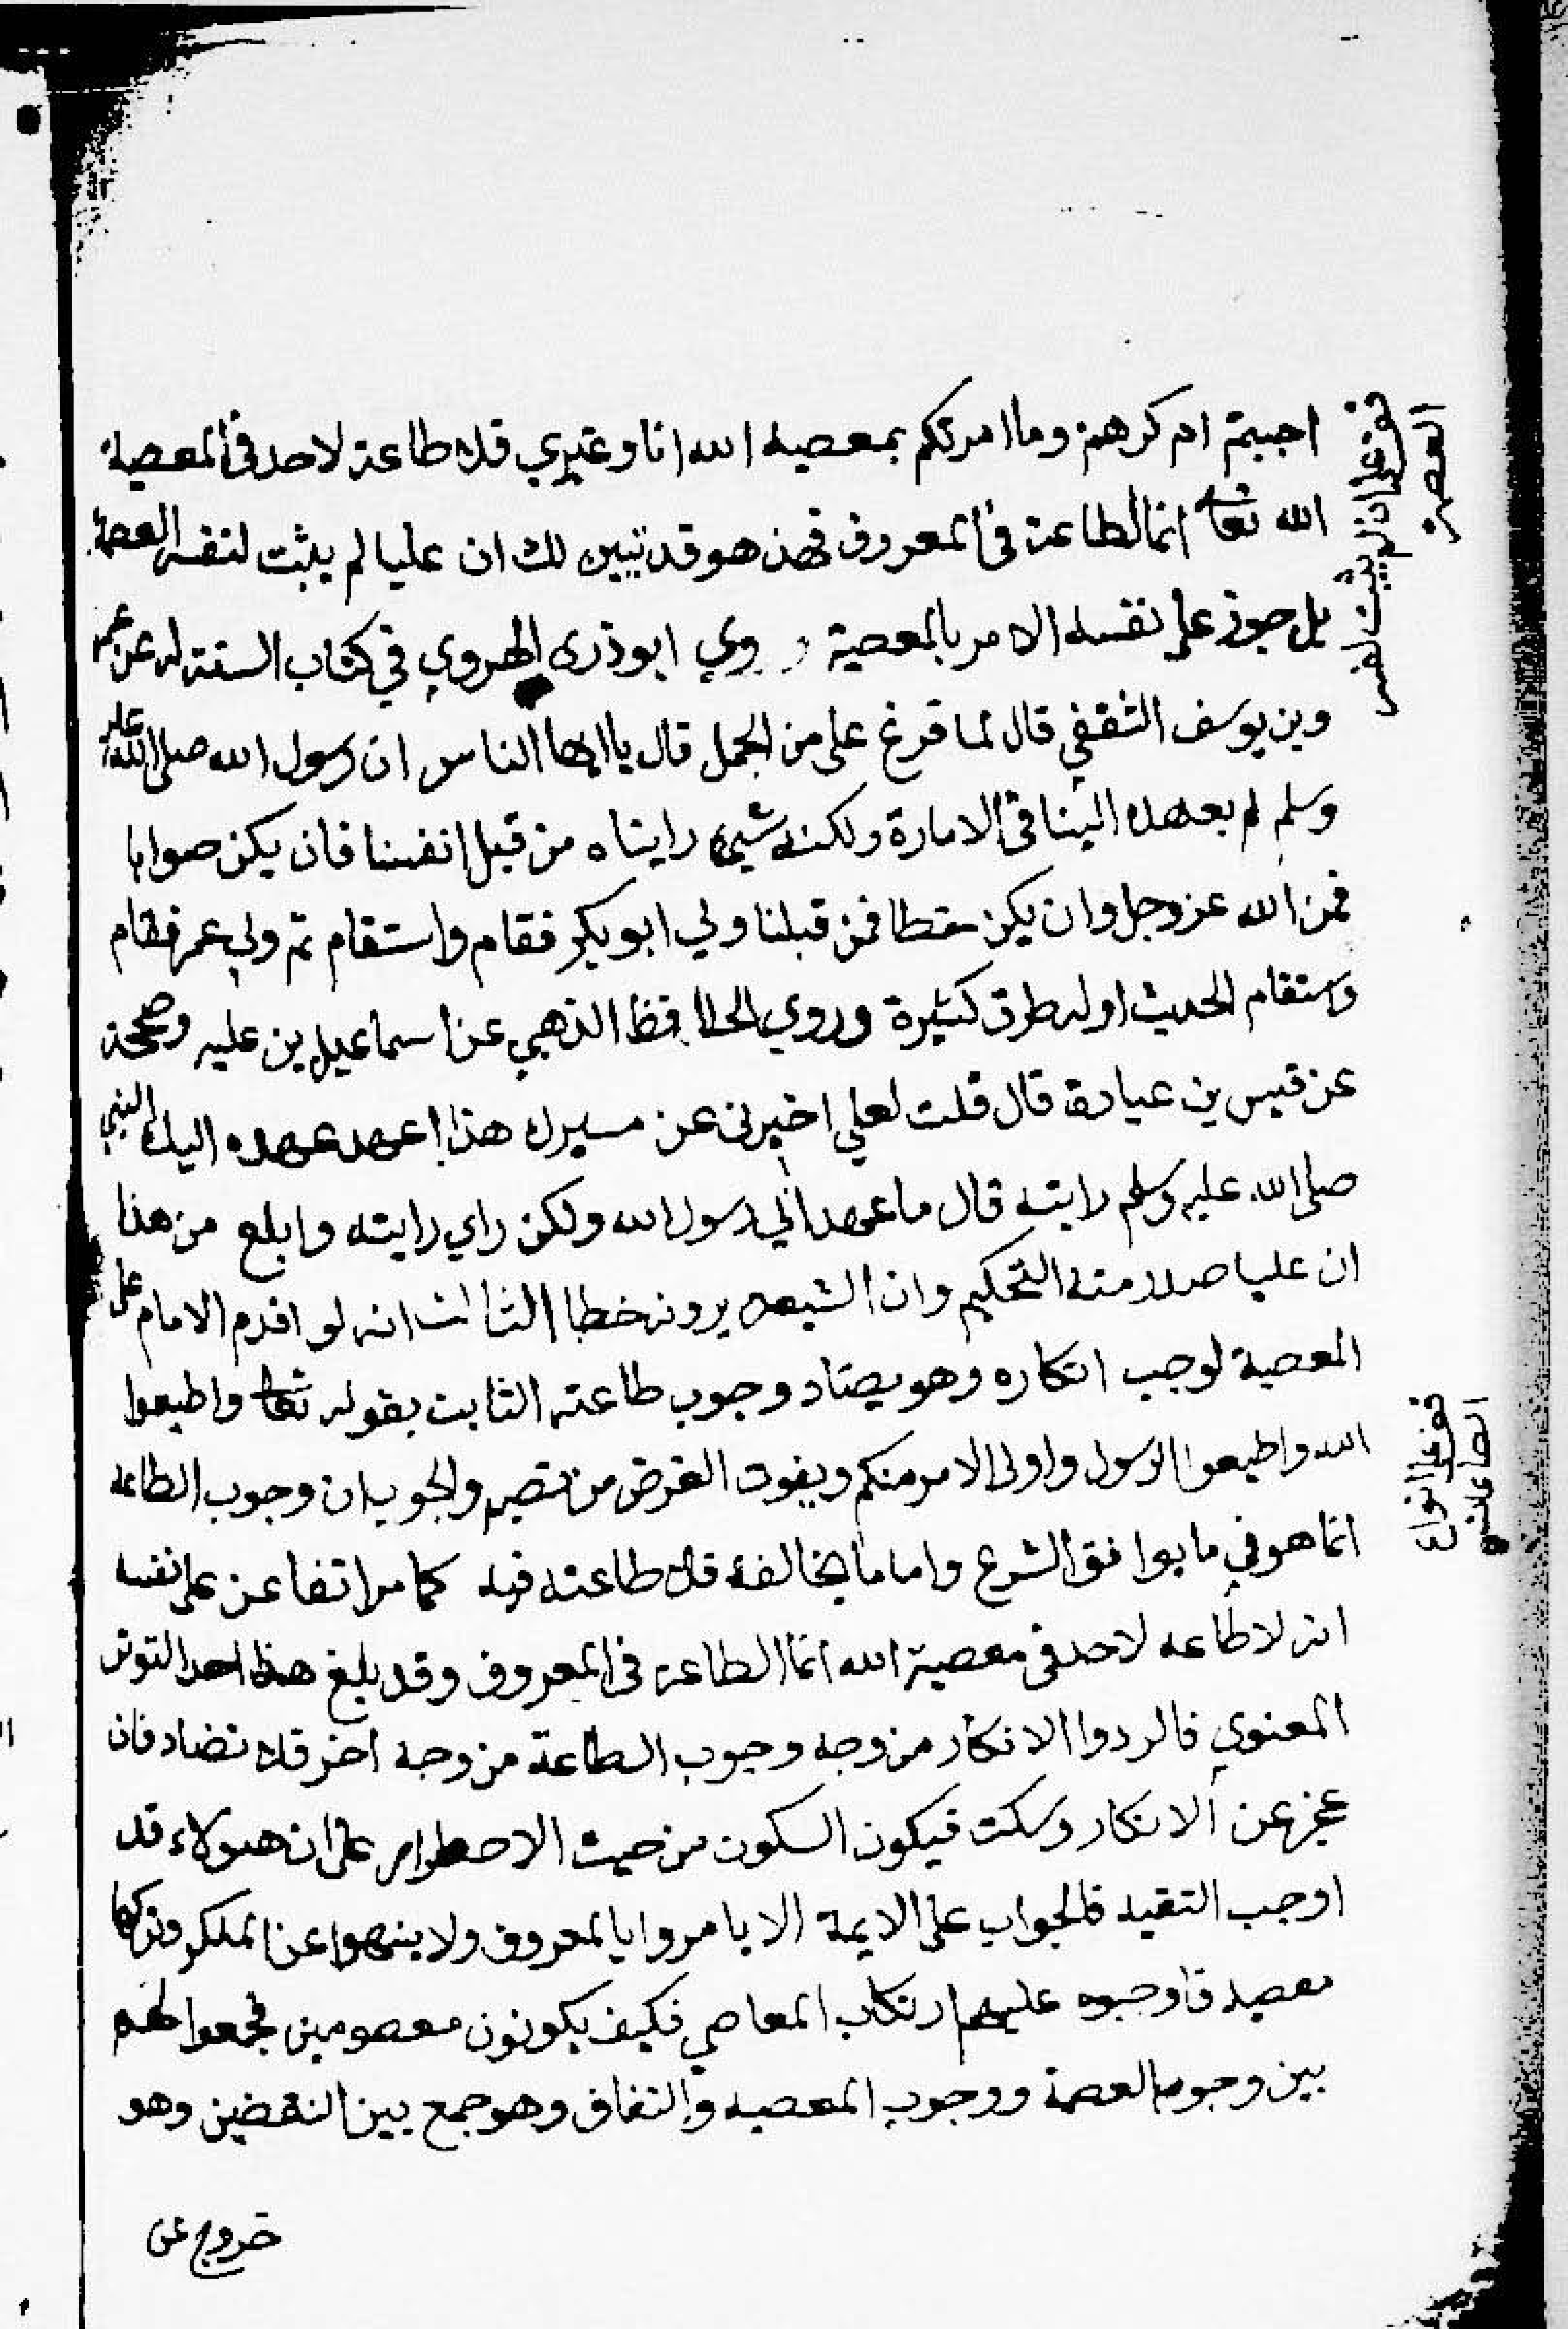 احببتم ام كرهتم وما امرتكم بمعصيه الله انا وغيري فلا طاعة لاحد في المعصية
الله تعالى انما الطاعة في المعروف فهذ هو قد تبين لك ان عليا لم يثبت لنفسه العصمة
بل جوز على نفسه الامر بالمعصية و روي ابوذرى الهروي في كتاب السنة له عن عمر
وبن يوسف الثقفي قال لما فرغ على من الجمل قال يا ايها الناس ان رسول الله صلى الله عليه
وسلم لم يعهد الينا في الامارة ولكنه شيئا رايناه من قبل انفسنا فان يكن صوابا
فمن الله عز وجل وان يكن خطا فمن قبلنا ولي ابو بكر فقام واستقام ثم ولي عمر فقام
وستقام الحديث اوله طرق كثيرة وروي الحافظ الذهبي عن اسماعيل بن عليه وصححه
عن قيس بن عبادة قال قلت لعلي اخبرنى عن مسيرك هذا اعهد عهده اليك النبي
صلى الله عليه وسلم رايته قال ما عهد الي رسول الله ولكن راي رايته وابلع من هذا
ان عليا صدر منه التحكيم وان الشيعه يرونه خطا الثالث انه لو اقدم الامام على
المعصية لوجب انكاره وهو يضاد وجوب طاعته الثابت بقوله تعالى واطيعوا
الله واطيعوا الرسول واولى الامر منكم ويفوت الغرض من نصبه والجوب ان وجوب الطاعه
انما هو في ما يوافق الشرع واما ما يخالفه فلا طاعته فيه كما مر انفا عن على نفسه
انه لا طاعه لاحد في معصية الله انما الطاعة في المعروف وقد بلغ هذا احد التوتر
المعنوي فالردوا الانكار من وجه وجوب الطاعة من وجه اخر فلا تضاد فان
عجز عن الانكار وسكت فيكون السكون من حيث الاضطرار على ان هولاء قد
اوجب التقيه فالجواب على الايمة الا يامروا بالمعروف ولا ينهوا عن الملكر وتركها
معصيه فاوجبوه عليهم ارتكاب المعاصي فكيف يكونون معصومين فجمعوا لهم
بين وجوب العصمة ووجوب المعصيه والنفاق وهو جمع بين النقضين وهو
خروج عن
قف على ان لم يثبت لنفسه
العصمة
قف على انواع
الطاعة